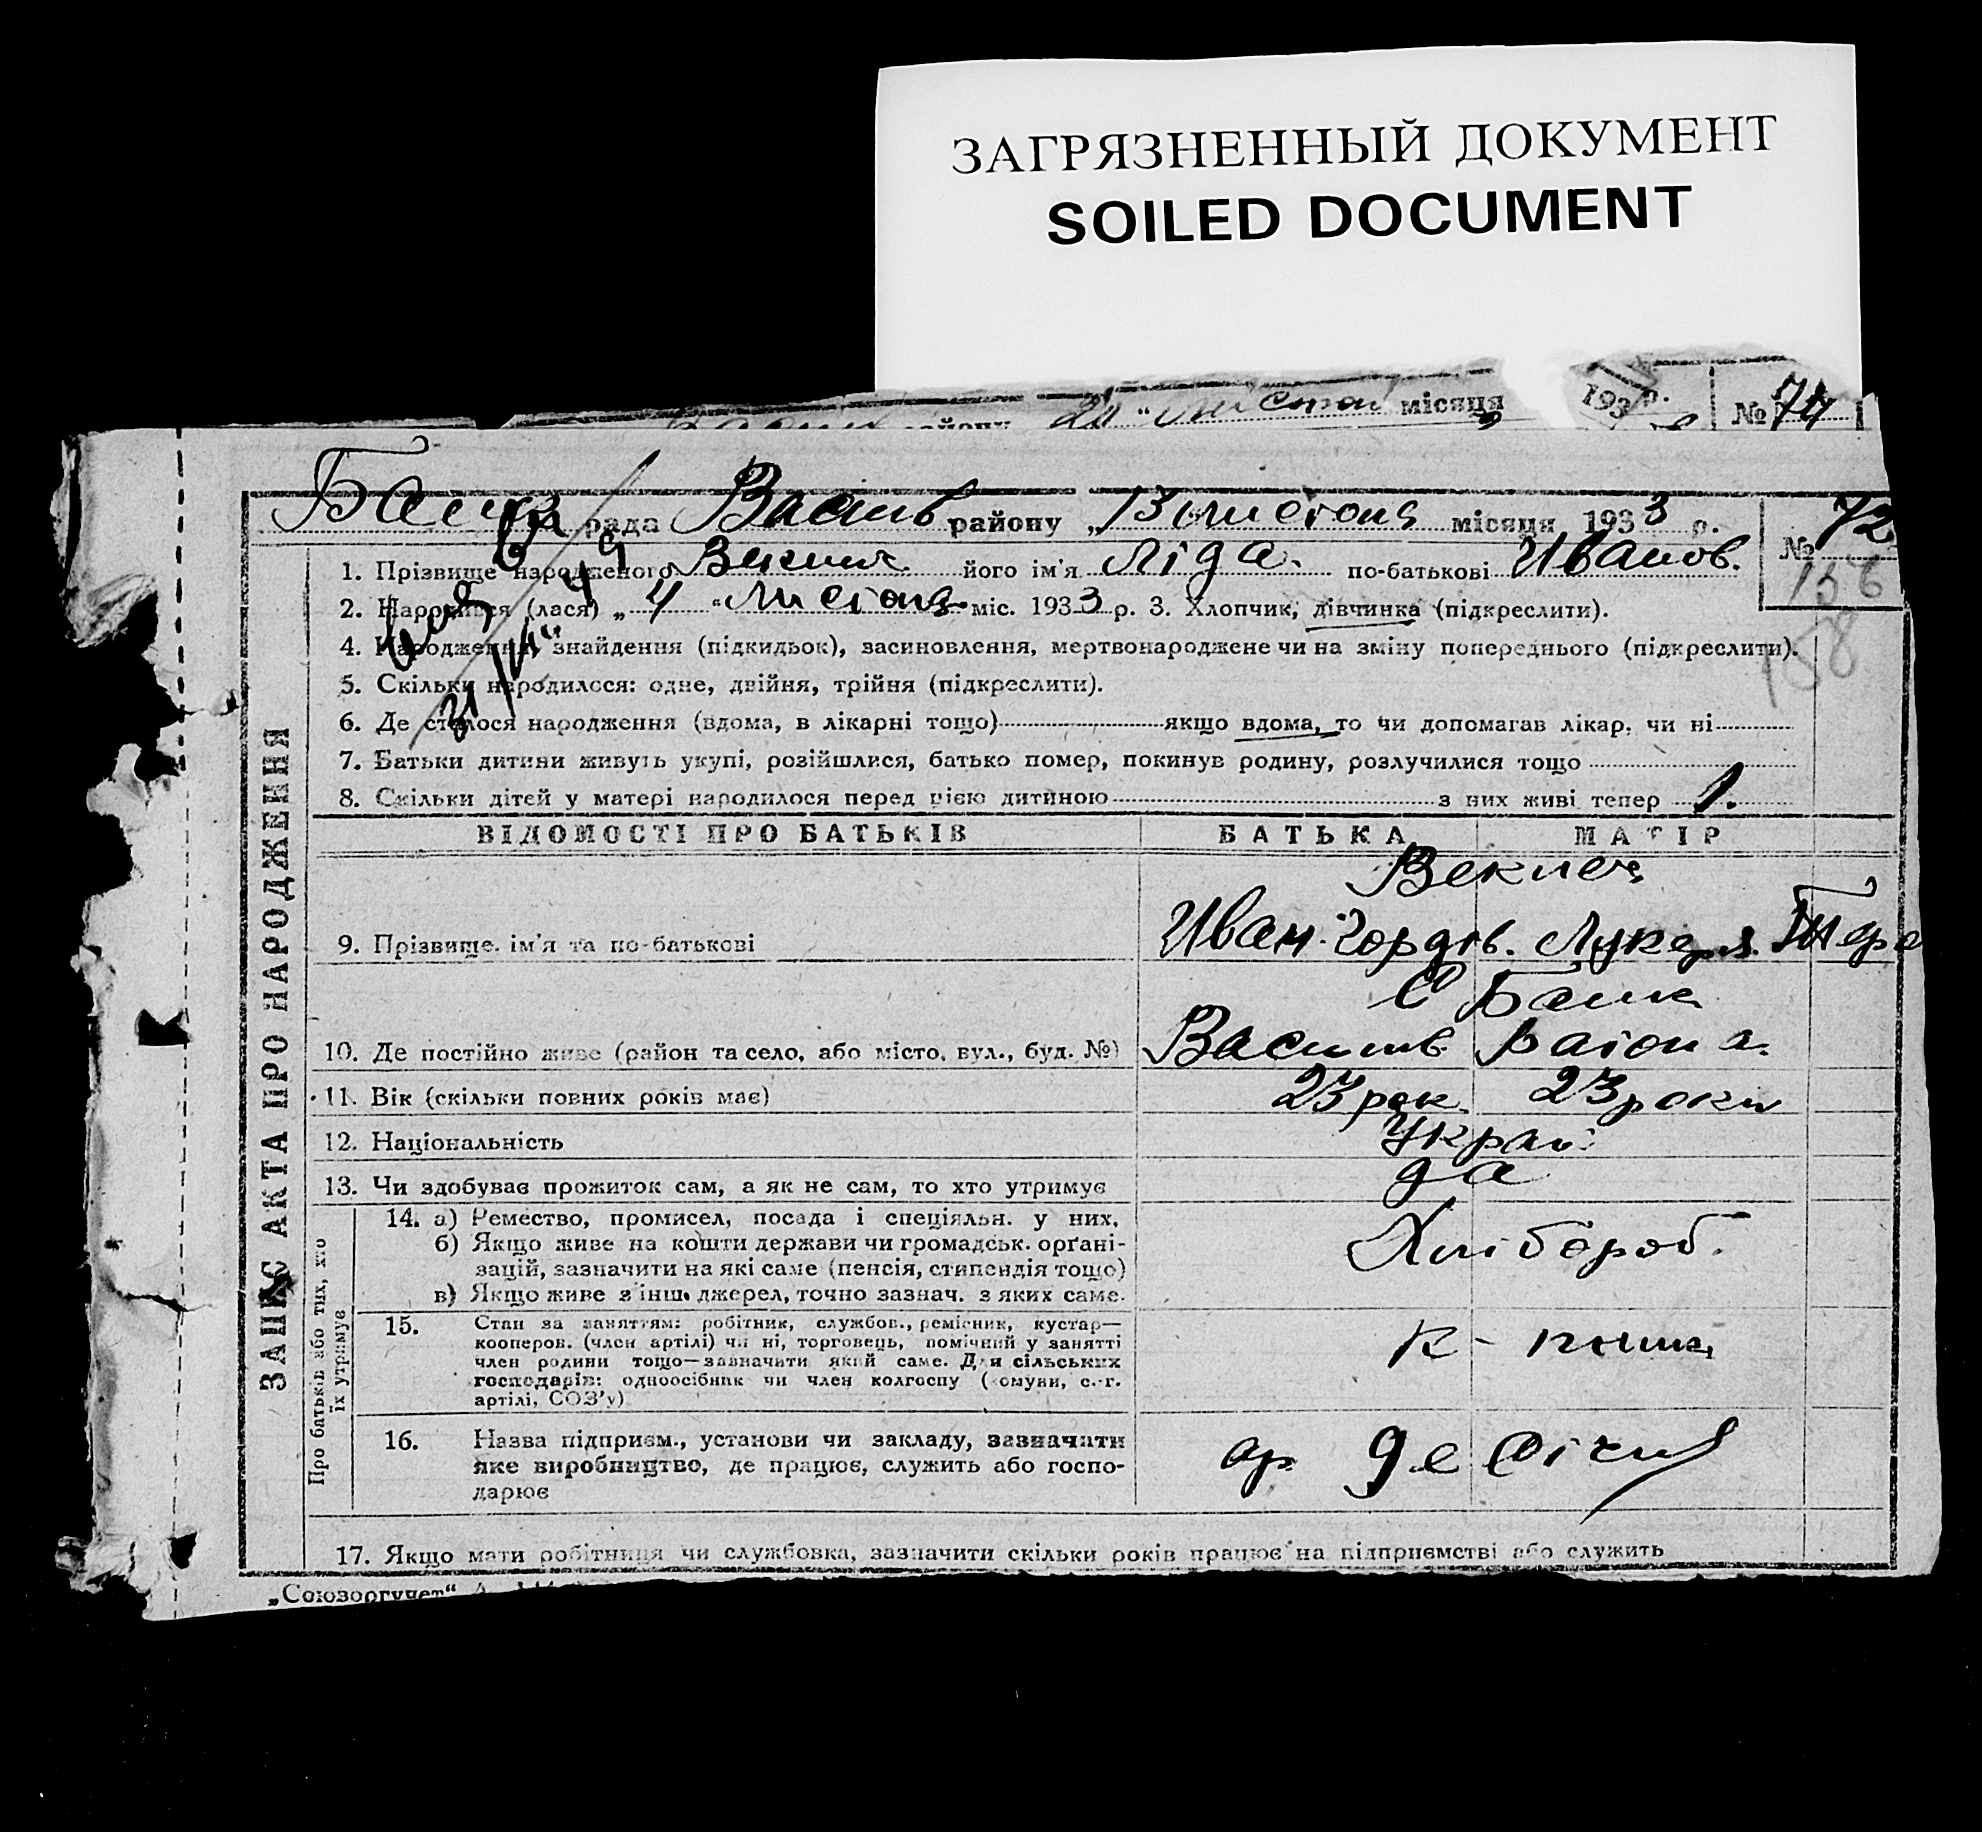 ЗАГРЯЗНЕННЫЙ ДОКУМЕНТ
SOILED DOCUMENT
місяця 193 р. № 74
рада Василів району „13 листопа місяця 1933 р. № 72
156
158
1. Прізвище народженого Веклич його ім'я Ліда. по-батькові Иванов.
2. Народився (лася) „4“ Листопа міс. 1933 р. 3. Хлопчик, дівчинка (підкреслити).
4. Народження, знайдення (підкидьок), засиновлення, мертвонароджене чи на зміну попереднього (підкреслити).
5. Скільки народилося: одне, двійня, трійня (підкреслити).
6. Де сталося народження (вдома, в лікарні тощо) якщо вдома, то чи допомагав лікар, чи ні
7. Батьки дитини живуть укупі, розійшлися, батько помер, покинув родину, розлучилися тощо
8. Скільки дітей у матері народилося перед цією дитиною з них живі тепер 1.
ЗАПИС АКТА ПРО НАРОДЖЕННЯ
ВІДОМОСТІ ПРО БАТЬКІВ БАТЬКА МАТІР
Веклич
9. Прізвище, ім'я та по-батькові Иван Гордів. Лукер
С Банк
10. Де постійно живе (район та село, або місто, вул., буд. №) Василів Району.
11. Вік (скільки повних років має) 23 рок. 23 роки
12. Національність Украї
13. Чи здобуває прожиток сам, а як не сам, то хто утримує да
Про батьків або тих, хто їх утримує
14. а) Ремество, промисел, посада і спеціяльн. у них.
б) Якщо живе на кошти держави чи громадськ. орґані-
зацій, зазначити на які саме (пенсія, стипендія тощо) Хлібороб.
в) Якщо живе з інш. джерел, точно зазнач. з яких саме.
15. Стан за заняттям: робітник, службов., ремісник, кустар—
кооперов. (член артілі) чи ні, торговець, помічний у занятті
член родини тощо—зазначити який саме. Для сільських
господарів: одноосібник чи член колгоспу (комуни, с.-г.
артілі, СОЗ'у)
16. Назва підприєм., установи чи закладу, зазначити
яке виробництво, де працює, служить або госпо-
дарює
17. Якщо мати робітниця чи службовка, зазначити скільки років працює на підприємстві або служить
„Союзоргучет“